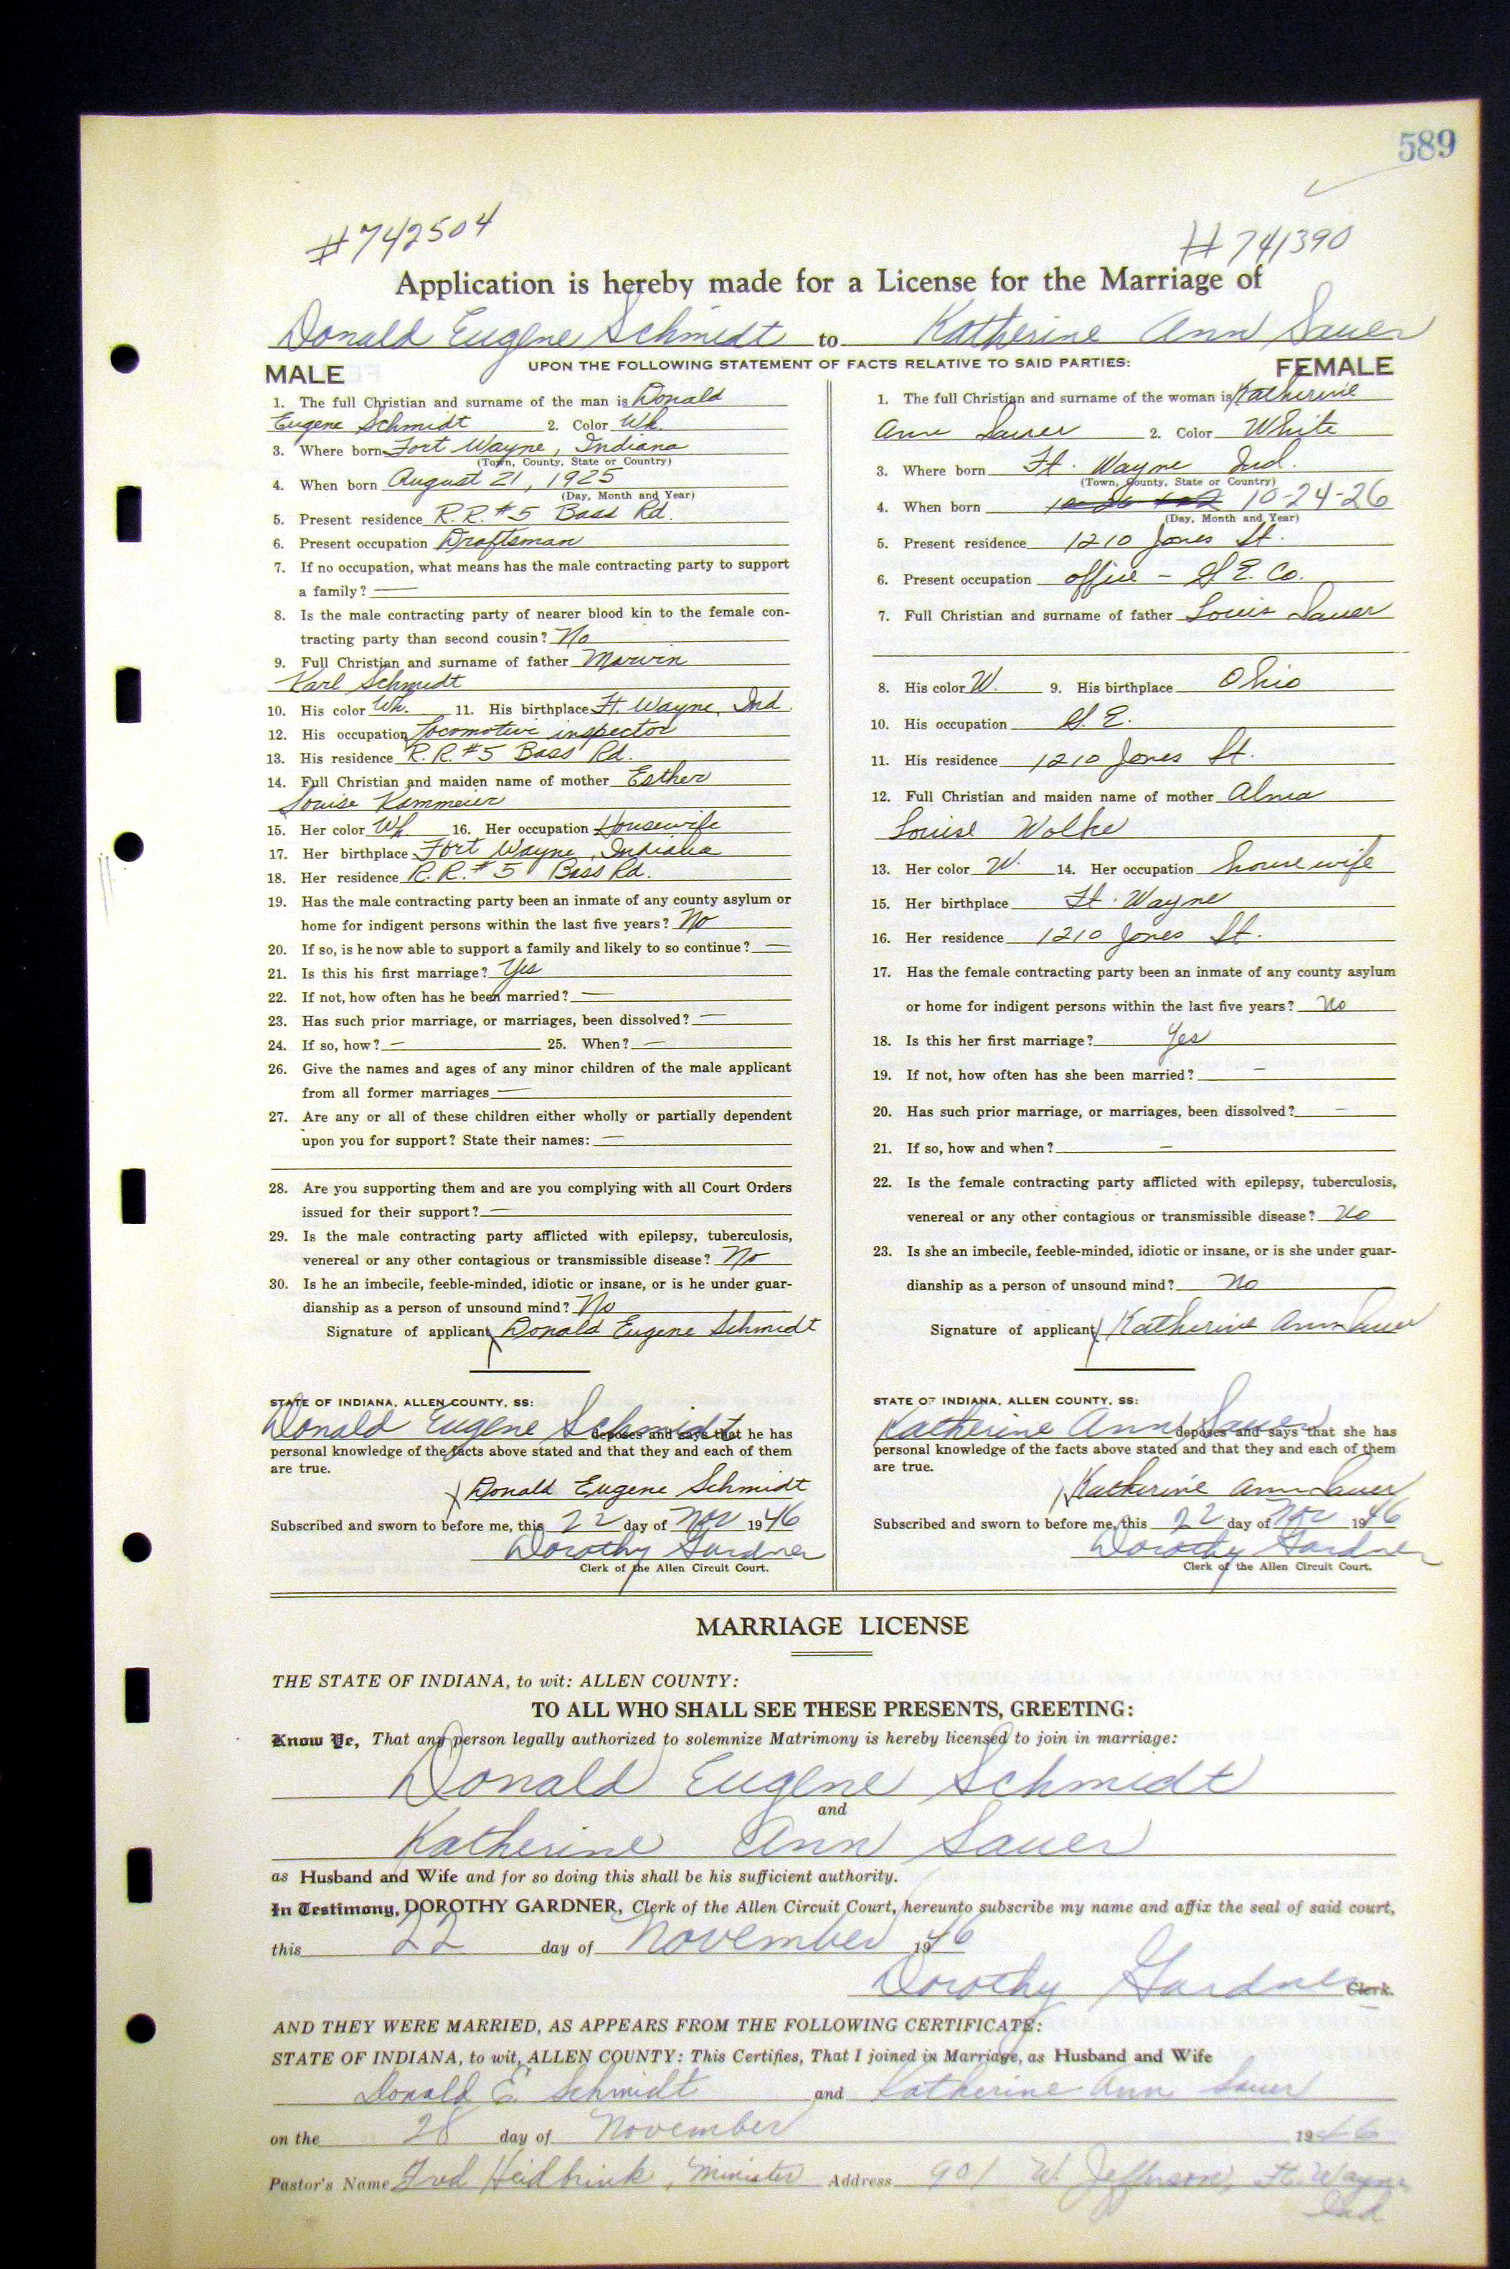 589
#742504 #741390
Application is hereby made for a License for the Marriage of
Donald Eugene Schmidt to Katherine Ann Sauer
UPON THE FOLLOWING STATEMENT OF FACTS RELATIVE TO SAID PARTIES:
MALE
1. The full Christian and surname of the man is Donald
Eugene Schmidt 2. Color Wh.
3. Where born Fort Wayne, Indiana
(Town, County, State or Country)
4. When born August 21, 1925
(Day, Month and Year)
5. Present residence R.R.#5 Bass Rd.
6. Present occupation Draftsman
7. If no occupation, what means has the male contracting party to support
a family? —
8. Is the male contracting party of nearer blood kin to the female con-
tracting party than second cousin? No
9. Full Christian and surname of father Marvin
Karl Schmidt
10. His color Wh. 11. His birthplace Ft. Wayne, Ind
12. His occupation Locomotive inspector
13. His residence R.R.#5 Bass Rd.
14. Full Christian and maiden name of mother Esther
Louise Kammeier
15. Her color Wh. 16. Her occupation Housewife
17. Her birthplace Fort Wayne, Indiana
18. Her residence R.R.#5 Bass Rd.
19. Has the male contracting party been an inmate of any county asylum or
home for indigent persons within the last five years? No
20. If so, is he now able to support a family and likely to so continue? —
21. Is this his first marriage? Yes
22. If not, how often has he been married? —
23. Has such prior marriage, or marriages, been dissolved? —
24. If so, how? — 25. When? —
26. Give the names and ages of any minor children of the male applicant
from all former marriages —
27. Are any or all of these children either wholly or partially dependent
upon you for support? State their names: —
28. Are you supporting them and are you complying with all Court Orders
issued for their support? —
29. Is the male contracting party afflicted with epilepsy, tuberculosis,
venereal or any other contagious or transmissible disease? No
30. Is he an imbecile, feeble-minded, idiotic or insane, or is he under guar-
dianship as a person of unsound mind? No
Signature of applicant Donald Eugene Schmidt
STATE OF INDIANA, ALLEN COUNTY, SS:
Donald Eugene Schmidt deposes and says that he has
personal knowledge of the facts above stated and that they and each of them
are true.
Donald Eugene Schmidt
Subscribed and sworn to before me, this 22 day of Nov 1946
Dorothy Gardner
Clerk of the Allen Circuit Court.
FEMALE
1. The full Christian and surname of the woman is Katherine
Ann Sauer 2. Color White
3. Where born Ft. Wayne Ind.
(Town, County, State or Country)
4. When born 10-24-26
(Day, Month and Year)
5. Present residence 1210 Jones St.
6. Present occupation office - G.E. Co.
7. Full Christian and surname of father Louis Sauer
8. His color W. 9. His birthplace Ohio
10. His occupation G.E.
11. His residence 1210 Jones St.
12. Full Christian and maiden name of mother Alma
Louise Wolke
13. Her color W. 14. Her occupation housewife
15. Her birthplace Ft. Wayne
16. Her residence 1210 Jones St.
17. Has the female contracting party been an inmate of any county asylum
or home for indigent persons within the last five years? No
18. Is this her first marriage? Yes
19. If not, how often has she been married? —
20. Has such prior marriage, or marriages, been dissolved? —
21. If so, how and when? —
22. Is the female contracting party afflicted with epilepsy, tuberculosis,
venereal or any other contagious or transmissible disease? No
23. Is she an imbecile, feeble-minded, idiotic or insane, or is she under guar-
dianship as a person of unsound mind? No
Signature of applicant Katherine Ann Sauer
STATE OF INDIANA, ALLEN COUNTY, SS:
Katherine Ann Sauer deposes and says that she has
personal knowledge of the facts above stated and that they and each of them
are true.
Katherine Ann Sauer
Subscribed and sworn to before me, this 22 day of Nov 1946
Dorothy Gardner
Clerk of the Allen Circuit Court.
MARRIAGE LICENSE
THE STATE OF INDIANA, to wit: ALLEN COUNTY:
TO ALL WHO SHALL SEE THESE PRESENTS, GREETING:
Know Ye, That any person legally authorized to solemnize Matrimony is hereby licensed to join in marriage:
Donald Eugene Schmidt
and
Katherine Ann Sauer
as Husband and Wife and for so doing this shall be his sufficient authority.
In Testimony, DOROTHY GARDNER, Clerk of the Allen Circuit Court, hereunto subscribe my name and affix the seal of said court,
this 22 day of November 1946
Dorothy Gardner Clerk.
AND THEY WERE MARRIED, AS APPEARS FROM THE FOLLOWING CERTIFICATE:
STATE OF INDIANA, to wit, ALLEN COUNTY: This Certifies, That I joined in Marriage, as Husband and Wife
Donald E. Schmidt and Katherine Ann Sauer
on the 28 day of November 1946
Pastor's Name Fred Heidbrink, Minister Address 901 W. Jefferson, Ft. Wayne,
Ind